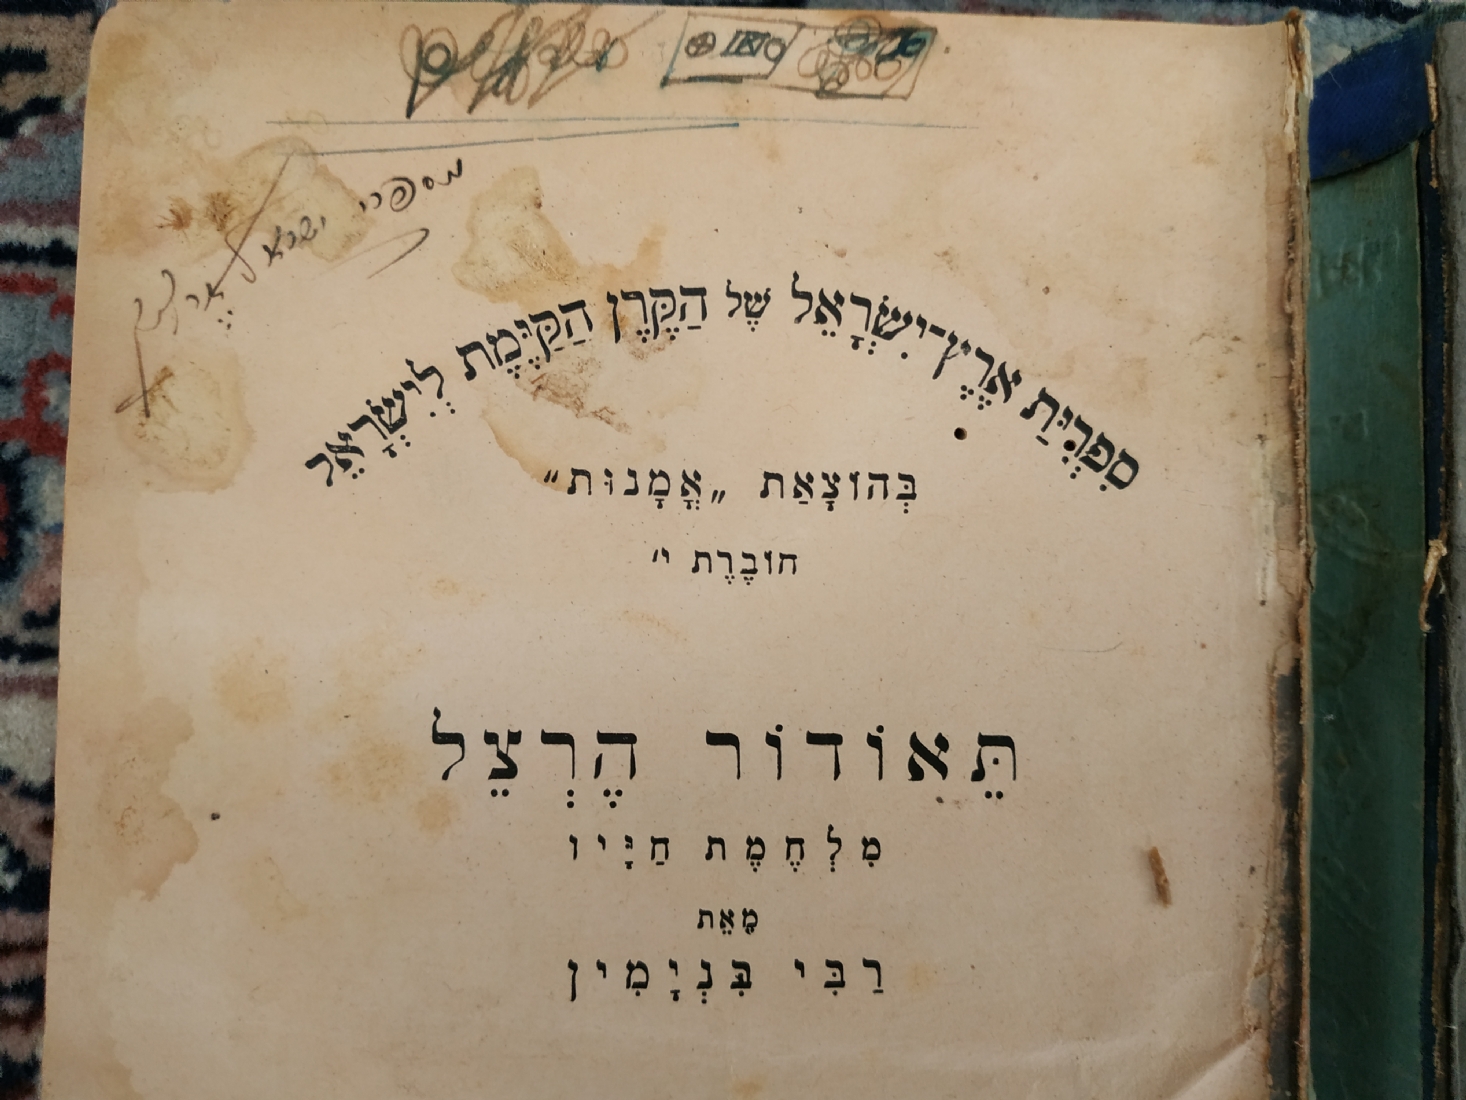 מספרי ישראל
סִפְרִיַּת אֶרֶץ־יִשְׂרָאֵל שֶׁל הַקֶּרֶן הַקַּיֶּמֶת לְיִשְׂרָאֵל
בְּהוֹצָאַת „אֳמָנוּת”
חוֹבֶרֶת י׳
תֵּאוֹדוֹר הֶרְצֵל
מִלְחֶמֶת חַיָּיו
מֵאֵת
רַבִּי בִּנְיָמִין